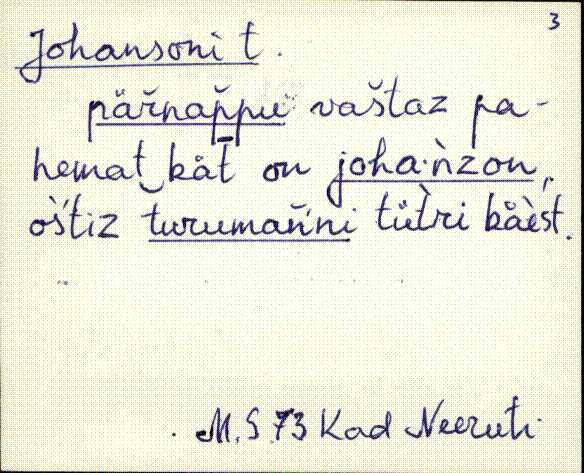 3
Johansoni t.
pärnappu vaštaz pa-
hemat kåt on joha·ǹzon,
ośtiz turumańni tütri kåèst.
M. S. 73 Kad Neeruti